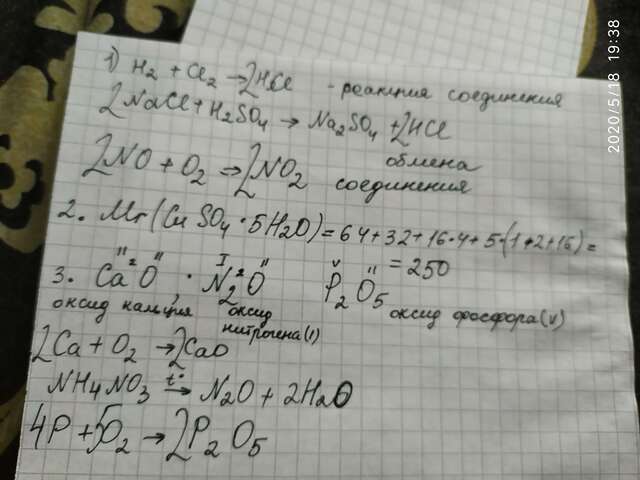 1) H₂ + Cl₂ → 2HCl - реакция соединения
2NaCl + H₂SO₄ → Na₂SO₄ + 2HCl
обмена
2NO + O₂ → 2NO₂ соединения
2. Mr(CuSO₄·5H₂O) = 64+32+16·4+5·(1·2+16) =
= 250
3. Ca^II O^II · N₂^I O^II P₂^V O₅^II
оксид кальция оксид нитрогена(I) оксид фосфора(V)
2Ca + O₂ → 2CaO
NH₄NO₃ t°→ N₂O + 2H₂O
4P + 5O₂ → 2P₂O₅
2020/5/18 19:38